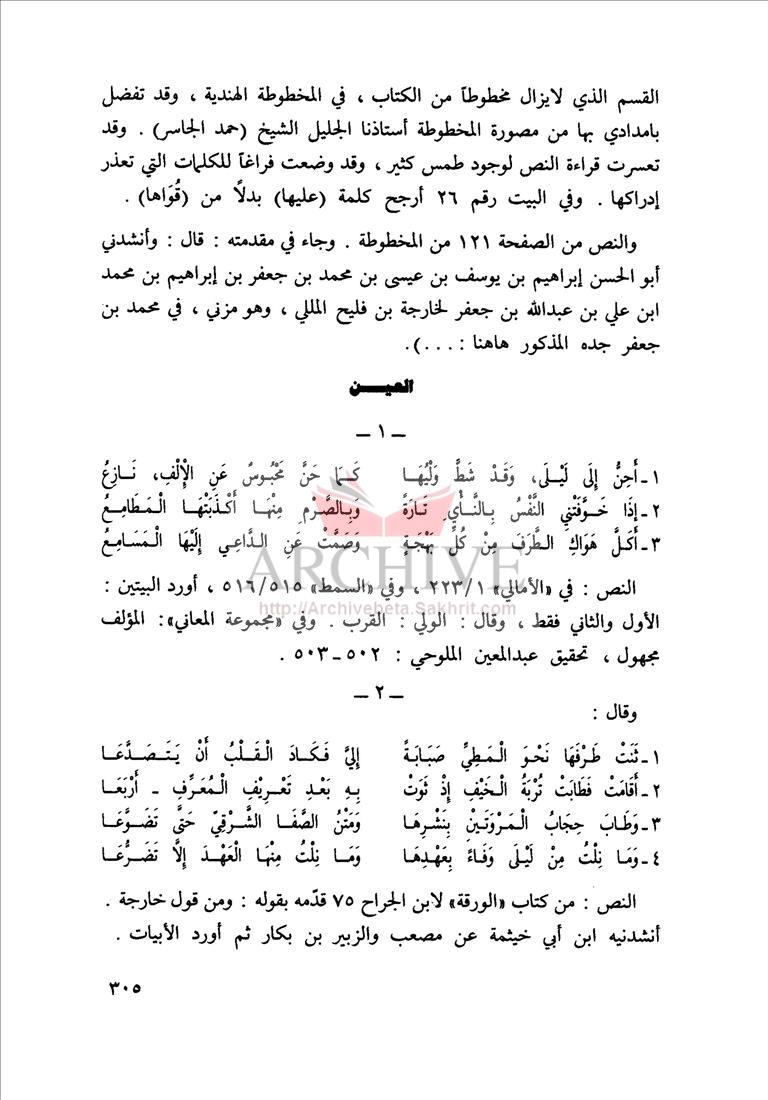 القسم الذي لايزال مخطوطاً من الكتاب ، في المخطوطة الهندية ، وقد تفضل
بامدادي بها من مصورة المخطوطة أستاذنا الجليل الشيخ (حمد الجاسر) . وقد
تعسرت قراءة النص لوجود طمس كثير ، وقد وضعت فراغاً للكلمات التي تعذر
إدراكها . وفي البيت رقم ٢٦ أرجح كلمة (عليها) بدلًا من (قُوَاها) .
والنص من الصفحة ١٢١ من المخطوطة . وجاء في مقدمته : قال : وأنشدني
أبو الحسن إبراهيم بن يوسف بن عيسى بن محمد بن جعفر بن إبراهيم بن محمد
ابن علي بن عبدالله بن جعفر لخارجة بن فليح المللي ، وهو مزني ، في محمد بن
جعفر جده المذكور هاهنا : . . .).
العيـــن
ــ ١ ــ
١ـ أَحِنُّ إِلَى لَيْلَى، وَقَدْ شَطَّ وَلْيُهَا كَمَا حَنَّ مَحْبُوسٌ عَنِ الْإِلْفِ، نَازِعُ
٢ـ إِذَا خَوَّفَتْنِي النَّفْسُ بِالنَّأْيِ تَارَةً وَبِالصَّرْمِ مِنْهَا أَكْذَبَتْهَا الْمَطَامِعُ
٣ـ أَكَلَّ هَوَاكِ الطَّرْفَ مِنْ كُلِّ بَهْجَةٍ وَصَمَّتْ عَنِ الدَّاعِي إِلَيْهَا الْمَسَامِعُ
ARCHIVE
النص : في «الأمالي» ٢٢٣/١ ، وفي «السمط» ٥١٦/٥١٥ ، أورد البيتين :
http://Archivebeta.Sakhrit.com
الأول والثاني فقط ، وقال : الولي : القرب . وفي «مجموعة المعاني»: المؤلف
مجهول ، تحقيق عبدالمعين الملوحي : ٥٠٢ـ٥٠٣ .
ــ ٢ ــ
وقال :
١ـ ثَنَتْ طَرْفَهَا نَحْوَ الْمَطِيِّ صَبَابَةً إِلَيَّ فَكَادَ الْقَلْبُ أَنْ يَتَصَدَّعَا
٢ـ أَقَامَتْ فَطَابَتْ تُرْبَةُ الْخَيْفِ إِذْ ثَوَتْ بِهِ بَعْدِ تَعْرِيْفِ الْمُعَرِّفِ ـ أَرْبَعَا
٣ـ وَطَابَ حِجَابُ الْمَرْوَتَيْنِ بِنَشْرِهَا وَمَتْنُ الصَّفَا الشَّرْقِيّ حَتَّى تَضَوَّعَا
٤ـ وَمَا نِلْتُ مِنْ لَيْلَى وَفَاءً بِعَهْدِهَا وَمَا نِلْتُ مِنْهَا الْعَهْدَ إِلَّا تَضَرُّعَا
النص : من كتاب «الورقة» لابن الجراح ٧٥ قدّمه بقوله : ومن قول خارجة .
أنشدنيه ابن أبي خيثمة عن مصعب والزبير بن بكار ثم أورد الأبيات .
٣٠٥